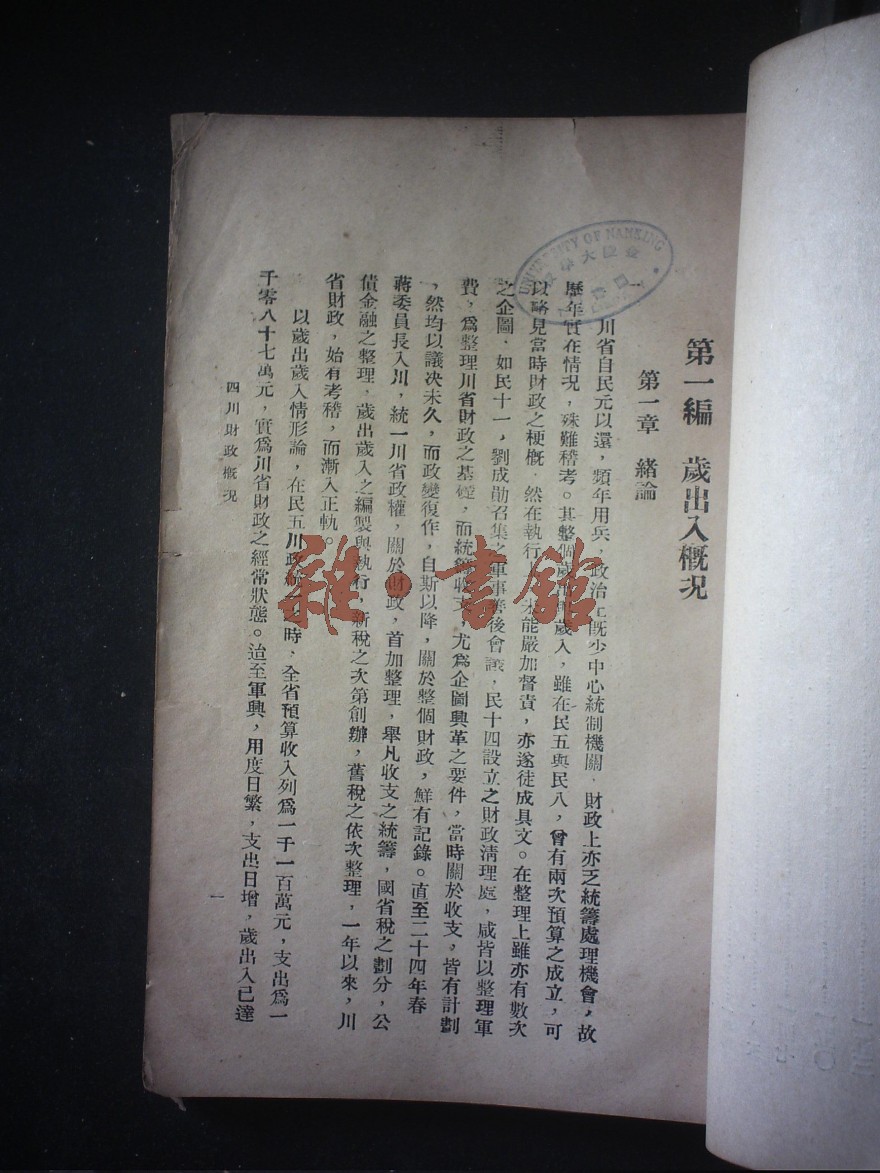 第一編　歲出入概況
第一章　緒論
一
川省自民元以還，頻年用兵，政治上既少中心統制機關，財政上亦乏統籌處理機會，故
歷年實在情況，殊難稽考。其整個歲出歲入，雖在民五與民八，曾有兩次預算之成立，可
以略見當時財政之梗概，然在執行上未能嚴加督責，亦遂徒成具文。在整理上雖亦有數次
之企圖，如民十一，劉成勛召集之軍事善後會議，民十四設立之財政清理處，咸皆以整理軍
費，為整理川省財政之基礎，而統籌收支，尤為企圖興革之要件，當時關於收支，皆有計劃
，然均以議決未久，而政變復作，自斯以降，關於整個財政，鮮有記錄。直至二十四年春
蔣委員長入川，統一川省政權，關於財政，首加整理，舉凡收支之統籌，國省稅之劃分，公
債金融之整理，歲出歲入之編製與執行，新稅之次第創辦，舊稅之依次整理，一年以來，川
省財政，始有考稽，而漸入正軌。
以歲出歲入情形論，在民五川政統一時，全省預算收入列為一千一百萬元，支出為一
千零八十七萬元，實為川省財政之經常狀態。迨至軍興，用度日繁，支出日增，歲出入已達
四川財政概況
一
UNIVERSITY OF NANKING
雜·書館